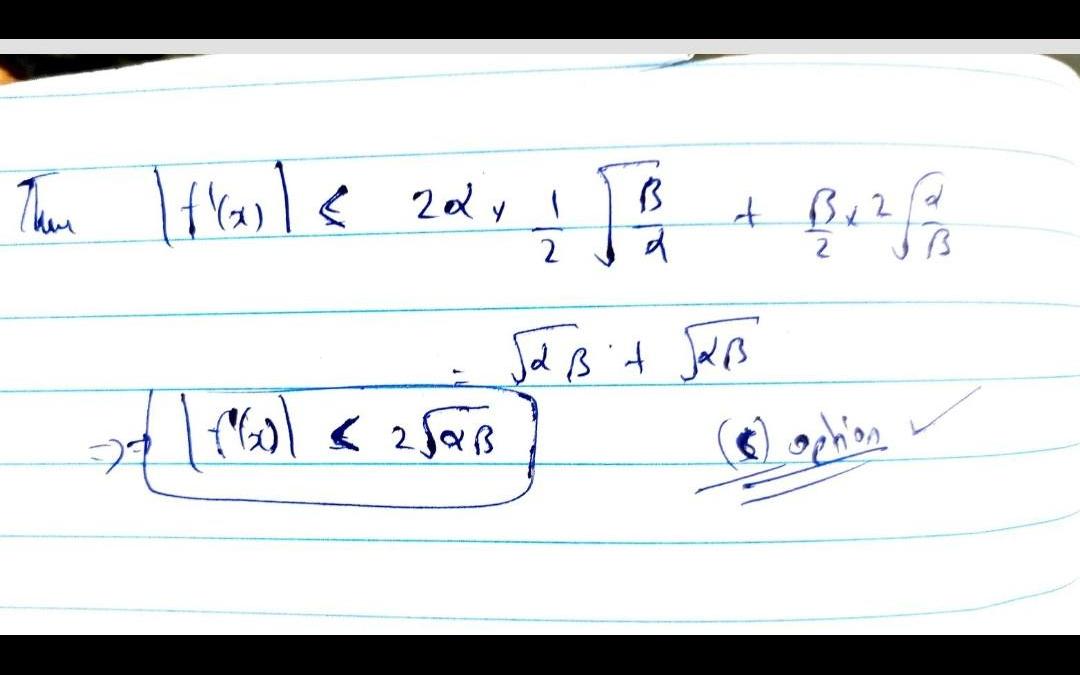 Then |f'(x)| ≤ 2α × 1/2 √(β/α) + β/2 × 2√(α/β)
= √αβ + √αβ
⇒ |f'(x)| ≤ 2√αβ (c) option ✓